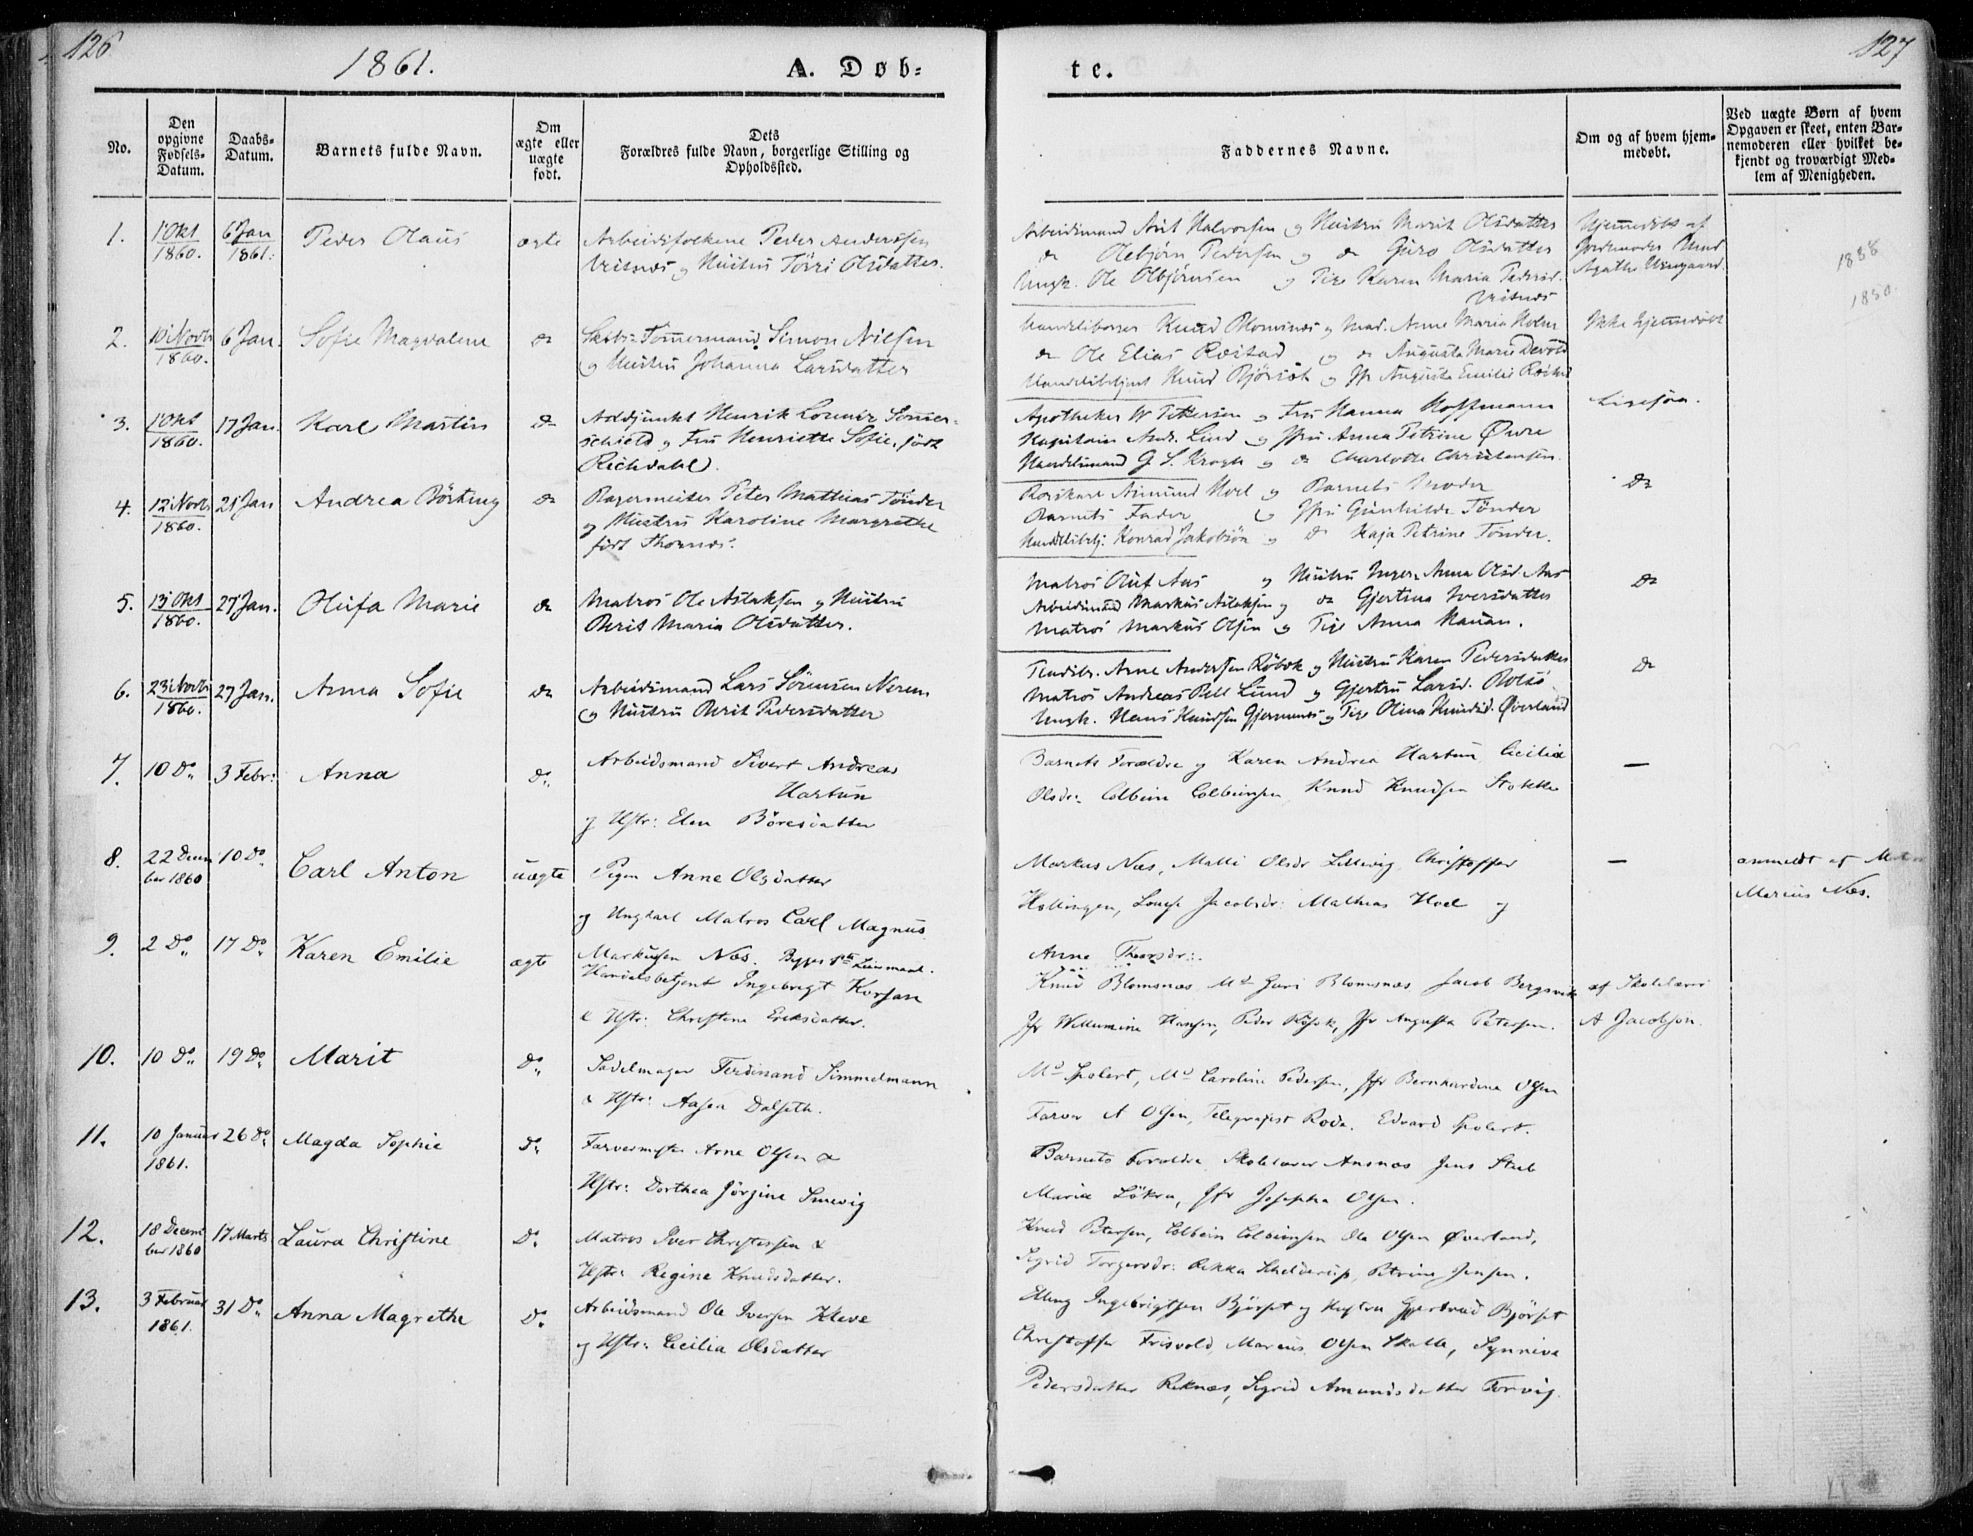 126
1861.
A. Døb-
te.
127
No.
Den opgivne Fødsels-Datum.
Daabs-Datum.
Barnets fulde Navn.
Om ægte eller uægte født.
Dets Forældres fulde Navn, borgerlige Stilling og Opholdssted.
Faddernes Navne.
Om og af hvem hjem-medøbt.
Ved uægte Børn af hvem Opgaven er skeet, enten Bar-nemoderen eller hvilket be-kjendt og troværdigt Med-lem af Menigheden.
1. 1 Okt 1860. 6 Jan 1861. Peder Olaus ægte
Arbeidsfolkene Peder Andersen
og Hustru Olsdatter.
Arbeidsmand Halvorsen og Hustru Marit Olsdatter
do Olebjørn Pedersen og do Guro Olsdatter
Ungk. Ole Olbjørnsen og Pige Karen Maria Pedersd.
Hjemmedøbt af
Jordemoder
1838
1850.
2. 10 Novbr 1860. 6 Jan. Sofie Magdalene do
Tømmermand Simon Nilsen
og Hustru Johanna Larsdatter
Knud Blomsnæs og Mad. Anne Maria Holm
do Ole Elias Røstad og do Augusta Marie Devold
Knud Bjørset og Jfr Augusta Emilie
Ikke hjemmedøbt
3. 1 Okt 1860. 17 Jan. Karl Martin do
Addjunkt Henrik Lorentz Somer-
schield og Fru Henriette Sofie, født
Richdahl.
Apotheker W Pettersen og Fru Hanna Hoffmann
Kapitain Andr. Lind og Jfru Anna Petrine Øwre
Handelsmand G. S. Krogh og do Charlotte Christensen.
Ligesaa.
4. 12 Novbr 1860. 21 Jan Andrea Börting do
Bagermester Peter Mathias Tönder
og Hustru Karoline Margrethe
født Thornæs.
Amund Hoel og Barnets Moder
Barnets Fader og Jfru Gunhilde Tönder
Handelsbetj. Konrad Jakobsön og do Kaja Petrine Tönder.
do
5. 13 Okt 1860. 27 Jan. Olufa Marie do
Matros Ole Aslaksen og Hustru
Berit Maria Olsdatter.
Matros Oluf Aas og Hustru Inger Anna Olsd. Aas
Arbeidsmand Markus Aslaksen og do Gjertina Iversdatter
Matros Markus Olsen og Pige Anna Hanan.
do
6. 23 Novbr 1860. 27 Jan. Anna Sofie do
Arbeidsmand Lars Sörensen Nerem
og Hustru Berit Pedersdatter
Arne Andersen Röbek og Hustru Karen Pedersdatter
Matros Andreas Pett Lund og Gjertru Larsd. Bolsö
Ungk. Hans Knudsen Gjermundnes og Pige Olina Knudsd. Överland
do
7. 10 Do 3 Febr: Anna do
Arbeidsmand Sivert Andreas
Hastun
og Hstr: Elen Böresdatter
Barnets Forældre og Karen Andrea Hastun Cecilia
Olsdr: Colbein Colbeinsen Knud Knudsen Stokke
—
8. 22 Decem ber 1860 10 Do Carl Anton uægte
Pigen Anne Olsdatter
og Ungkarl Matros Carl Magnus
Markusen Næs.
Markus Næs, Malli Olsdr Lillevig Christoffer
Hollingen, Lovise Jacobsdr: Mathias Hoel og
Anne Thorsdr:
—
anmeldt af
Marius Næs.
9. 2 Do 17 Do Karen Emilie ægte
Handelsbetjent Ingebrigt Korsan
& Hstr: Christine Eriksdatter.
Knud Blomsnæs Md Guri Blomsnæs Jacob Bergsvik
Jfr Willumine Hansen, Peder Röbek, Jfr Augusta Petersen.
af Skolelærer
A Jacobsen.
10. 10 Do 19 Do Marit do
Sadelmager Ferdinand Simmelmann
& Hstr: Aasen Dalseth.
Md Spolert, Md Caroline Pedersen, Jfr Bernhardine Olsen
Farver A Olsen, Telegrafist Rode. Edvard Spolert.
11. 10 Januar 1861. 26 Do Magda Sophie do
Farvermester Arne Olsen &
Hstr: Dorthea Jörgine Smevig
Barnets Forældre Skolelærer Ansnæs Jens Stub
Maria Lökra, Jfr Josepha Olsen.
12. 18 Decem ber 1860 17 Marts Laura Christine Do
Matros Iver Christensen &
Hstr: Regine Knudsdatter.
Knud Petersen, Colbein Colbeinsen Ole Olsen Överland,
Sigrid Torgersdr: Rikka Schelderup, Petrine Jensen.
13. 3 Februar 1861. 31 Do Anna Magrethe Do
Arbeidsmand Ole Iversen Kleve
og Hstr: Cecilia Olsdatter
Elling Ingebrigtsen Björset og Hustru Gjertrud Björset
Christoffer Frisvold, Marius Olsen Skalle, Synniva
Pedersdatter Reknæs, Sigrid Amundsdatter Torvig.